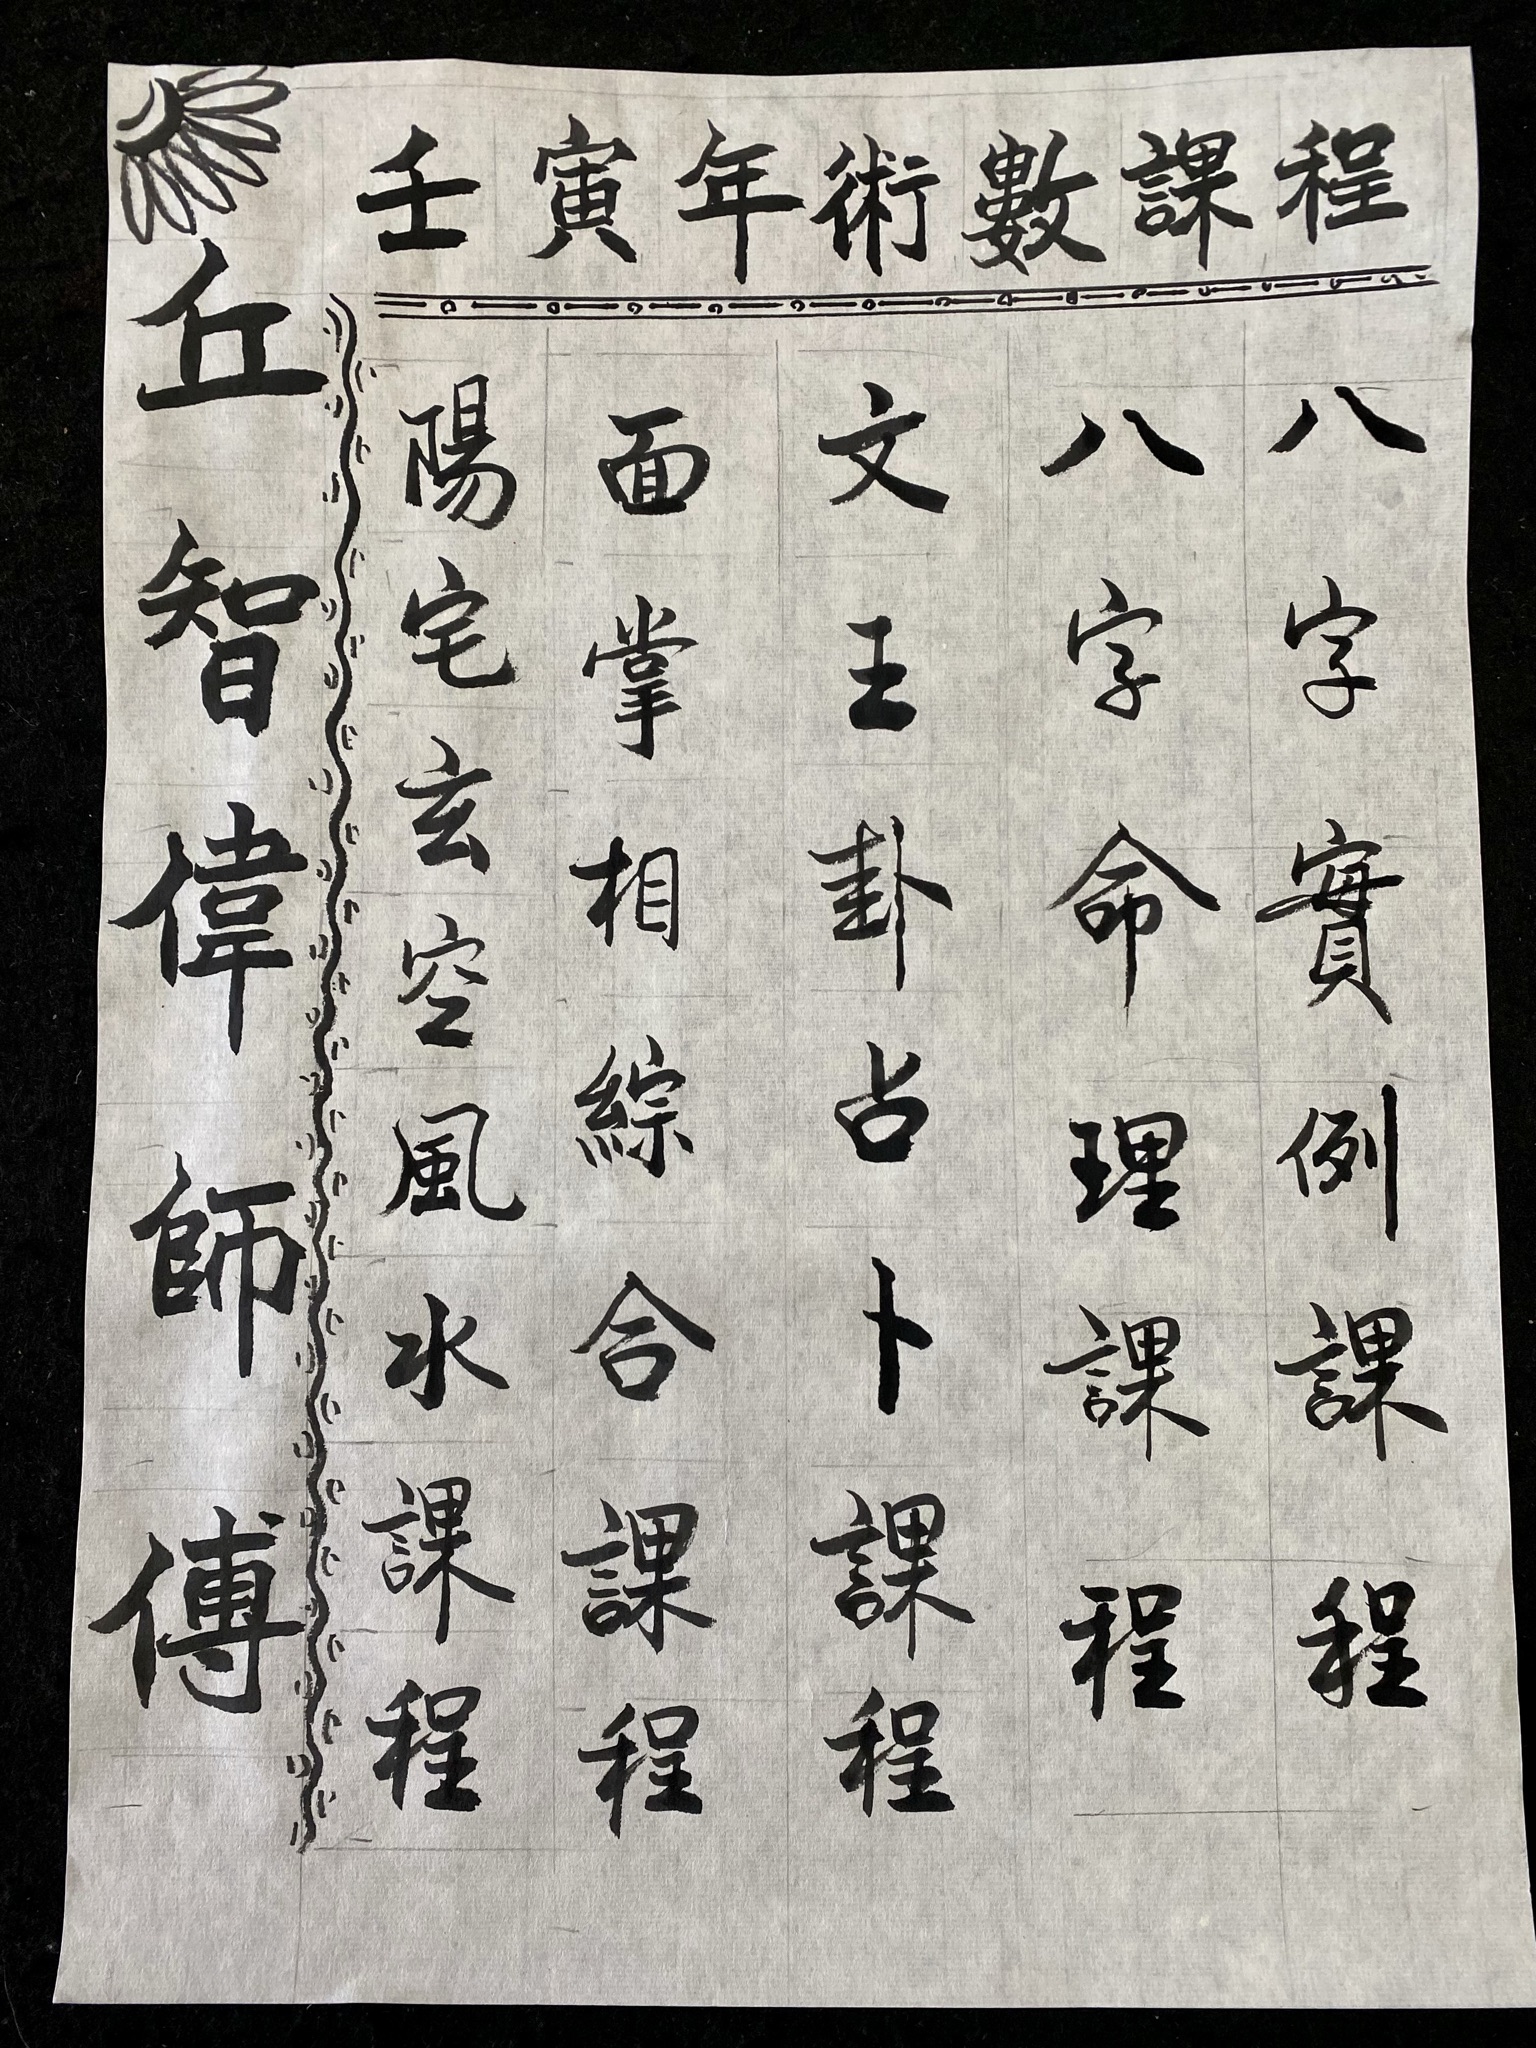 壬寅年術數課程
八字實例課程
八字命理課程
文王卦占卜課程
面掌相綜合課程
陽宅玄空風水課程
丘智偉師傅